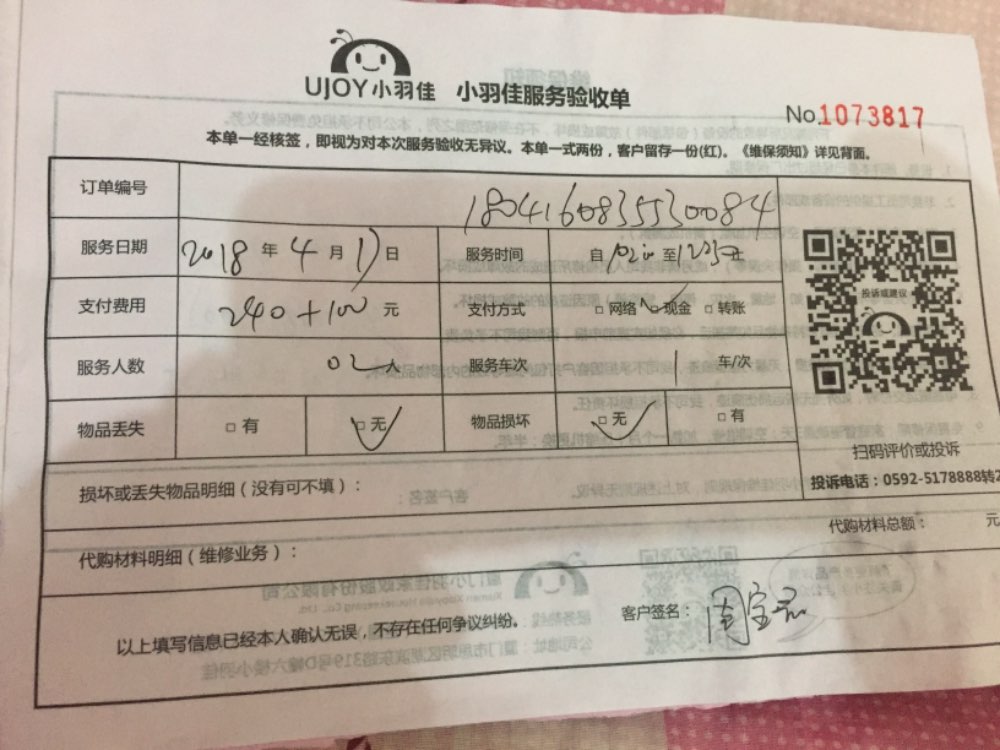 UJOY小羽佳 小羽佳服务验收单
No.1073817
本单一经核签，即视为对本次服务验收无异议。本单一式两份，客户留存一份(红)。《维保须知》详见背面。
订单编号 18041608355530084
服务日期 2018 年 4 月 17 日 服务时间 自 至
支付费用 240+100 元 支付方式 □网络 现金 □转账
服务人数 02人 服务车次 1 车/次
物品丢失 □有 □无 物品损坏 □无 □有
投诉或建议
扫码评价或投诉
投诉电话：0592-5178888转2
损坏或丢失物品明细（没有可不填）：
代购材料总额： 元
代购材料明细（维修业务）：
以上填写信息已经本人确认无误，不存在任何争议纠纷。
客户签名：